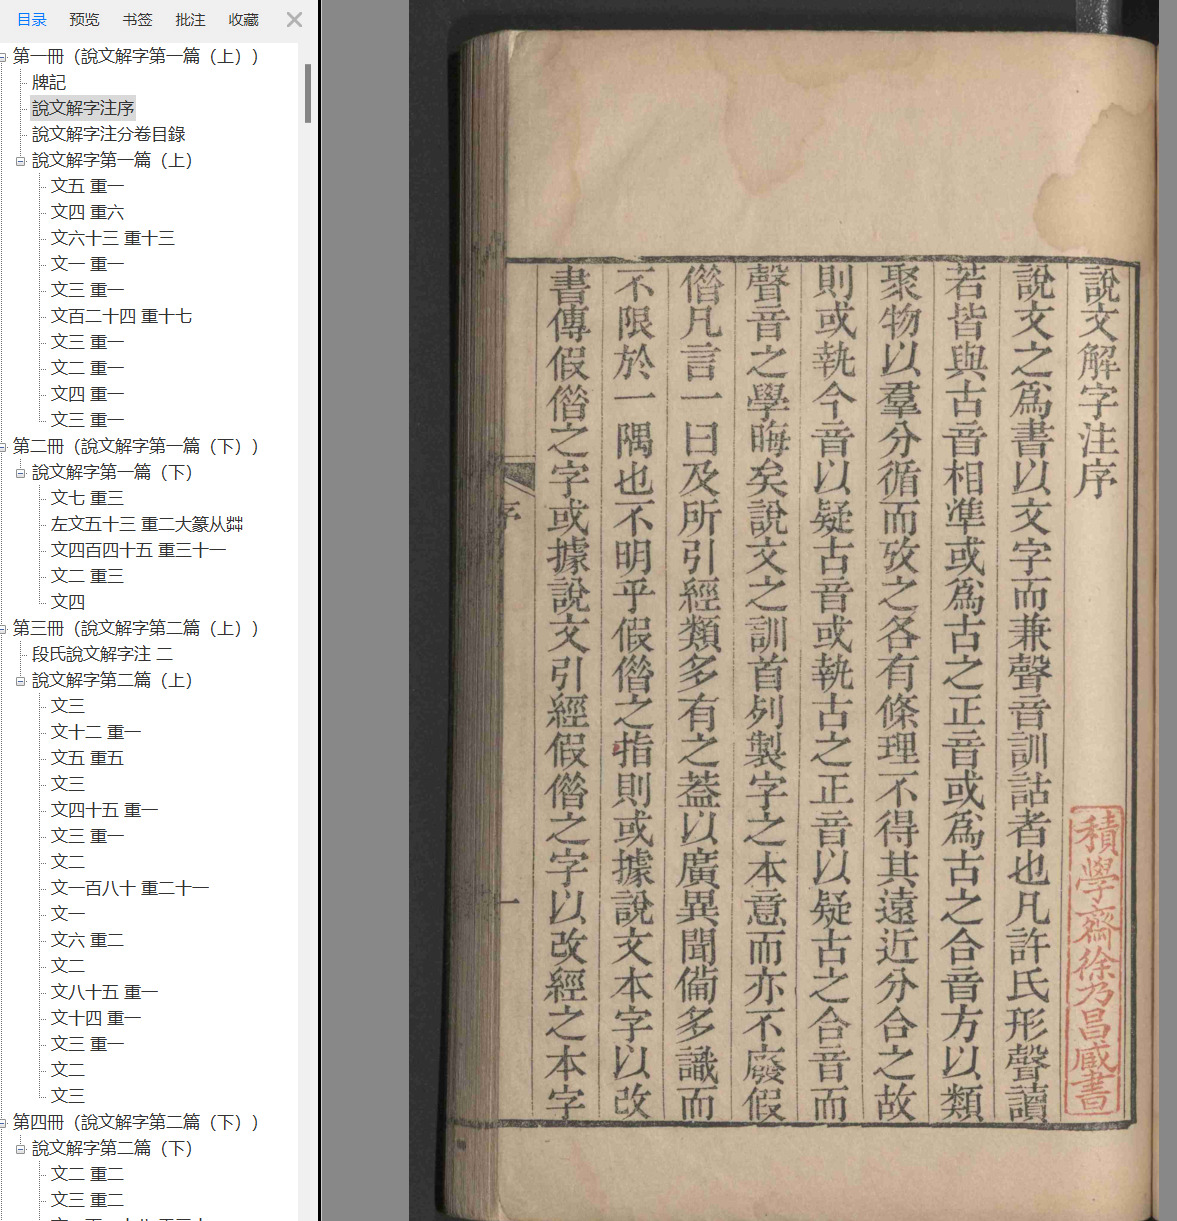 目录 预览 书签 批注 收藏
第一冊（說文解字第一篇（上））
牌記
說文解字注序
說文解字注分卷目錄
說文解字第一篇（上）
文五 重一
文四 重六
文六十三 重十三
文一 重一
文三 重一
文百二十四 重十七
文三 重一
文二 重一
文四 重一
文三 重一
第二冊（說文解字第一篇（下））
說文解字第一篇（下）
文七 重三
左文五十三 重二大篆从茻
文四百四十五 重三十一
文二 重三
文四
第三冊（說文解字第二篇（上））
段氏說文解字注 二
說文解字第二篇（上）
文三
文十二 重一
文五 重五
文三
文四十五 重一
文三 重一
文二
文一百八十 重二十一
文一
文六 重二
文二
文八十五 重一
文十四 重一
文三 重一
文二
文三
第四冊（說文解字第二篇（下））
說文解字第二篇（下）
文二 重二
文三 重二
說文解字注序
積學齋徐乃昌臧書
說文之爲書以文字而兼聲音訓詁者也凡許氏形聲讀
若皆與古音相準或爲古之正音或爲古之合音方以類
聚物以羣分循而攷之各有條理不得其遠近分合之故
則或執今音以疑古音或執古之正音以疑古之合音而
聲音之學晦矣說文之訓首列製字之本意而亦不廢假
偺凡言一曰及所引經類多有之蓋以廣異聞僃多識而
不限於一隅也不明乎假偺之指則或據說文本字以改
書傳假偺之字或據說文引經假偺之字以改經之本字
序
一